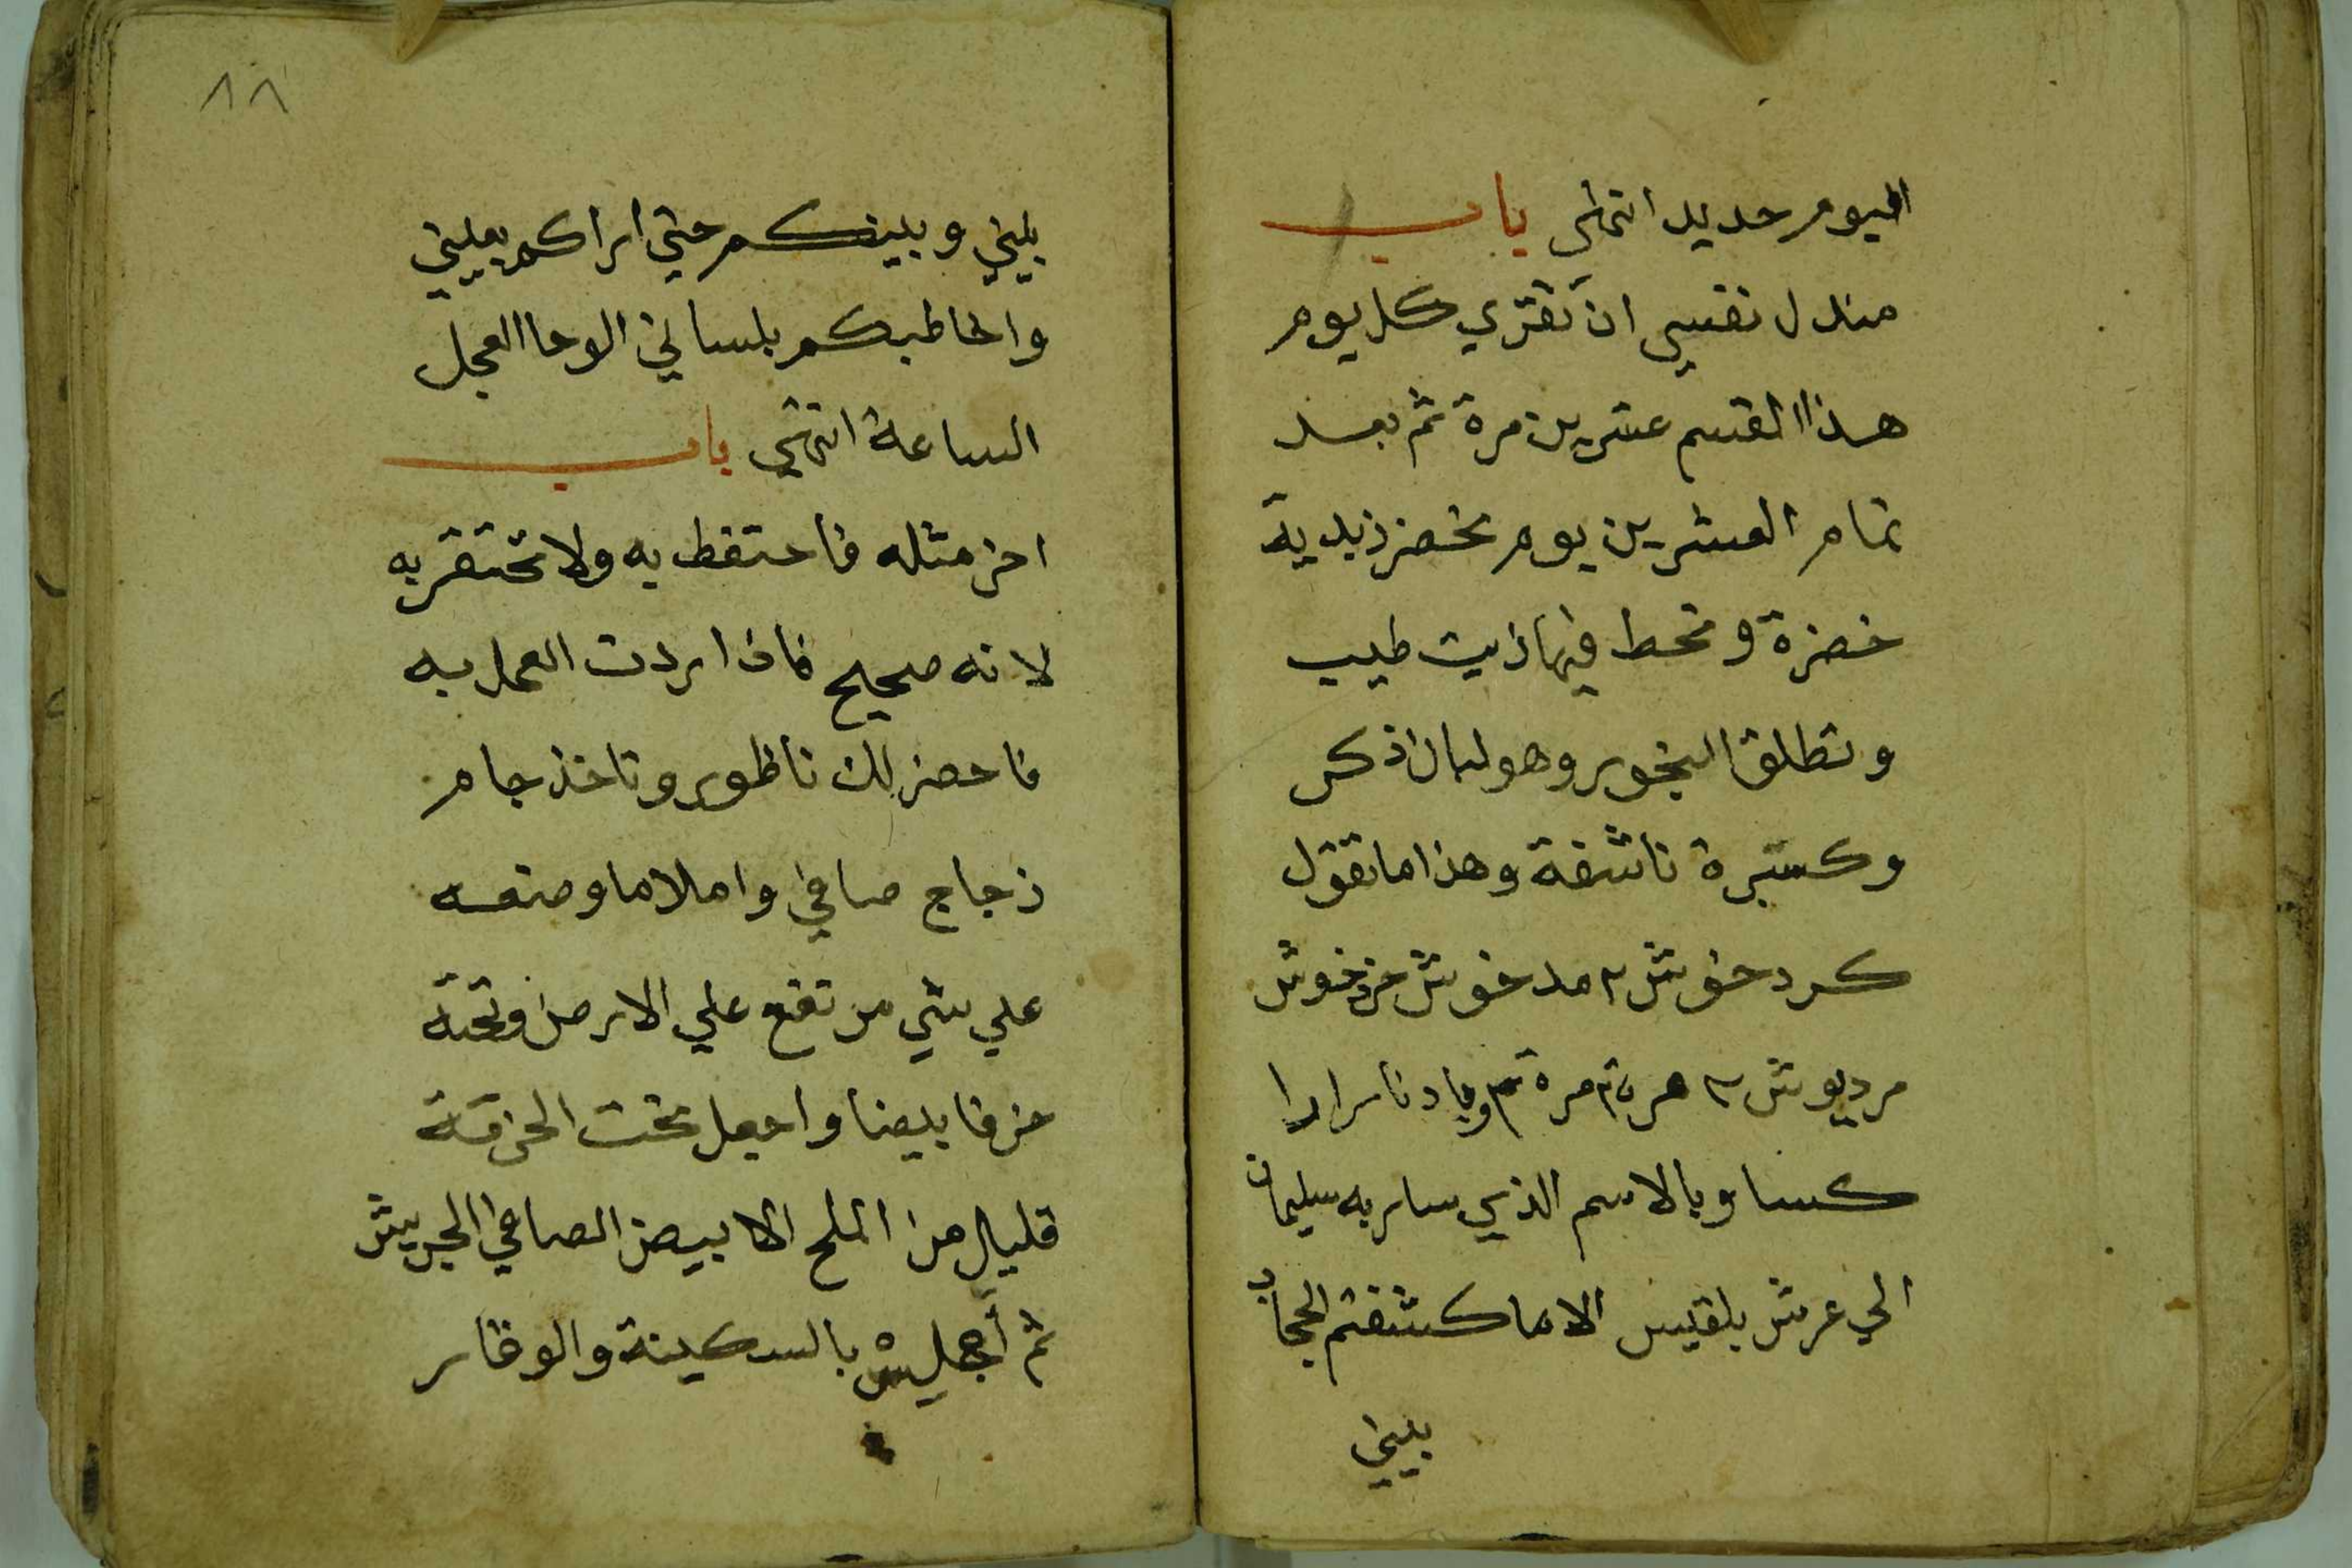 اليوم حديد انتهى باب
مندل نفسي ان تقري كل يوم
هذا القسم عشرين مرة ثم بعد
تمام العشرين يوم تخضر زبدية
خضرة وتحط فيها زيت طيب
وتطلق البخور وهو لبان ذكر
وكسبرة ناشفة وهذا ما تقول
كردخوش ٢ مدخوش خردخوش
مرديوش ٢ مرة
كسا وبالاسم الذي سار به سليمان
الي عرش بلقيس الاما كشفتم الحجاب
بيني
٨٨
بيني وبينكم حتي اراكم بعيني
واخاطبكم بلساني الوحا العجل
الساعة انتهي باب
اخر مثله فاحتفظ به ولا تحتقر به
لانه صحيح فاذا اردت العمل به
فاحضر لك ناظور وتاخذ جام
زجاج صافي واملاه ما وضعه
علي شي مرتفع علي الارض وتحته
خرقا بيضا واجعل تحت الخرقة
قليل من الملح الابيض الصافي الجريش
ثم أجلس بالسكينة والوقار